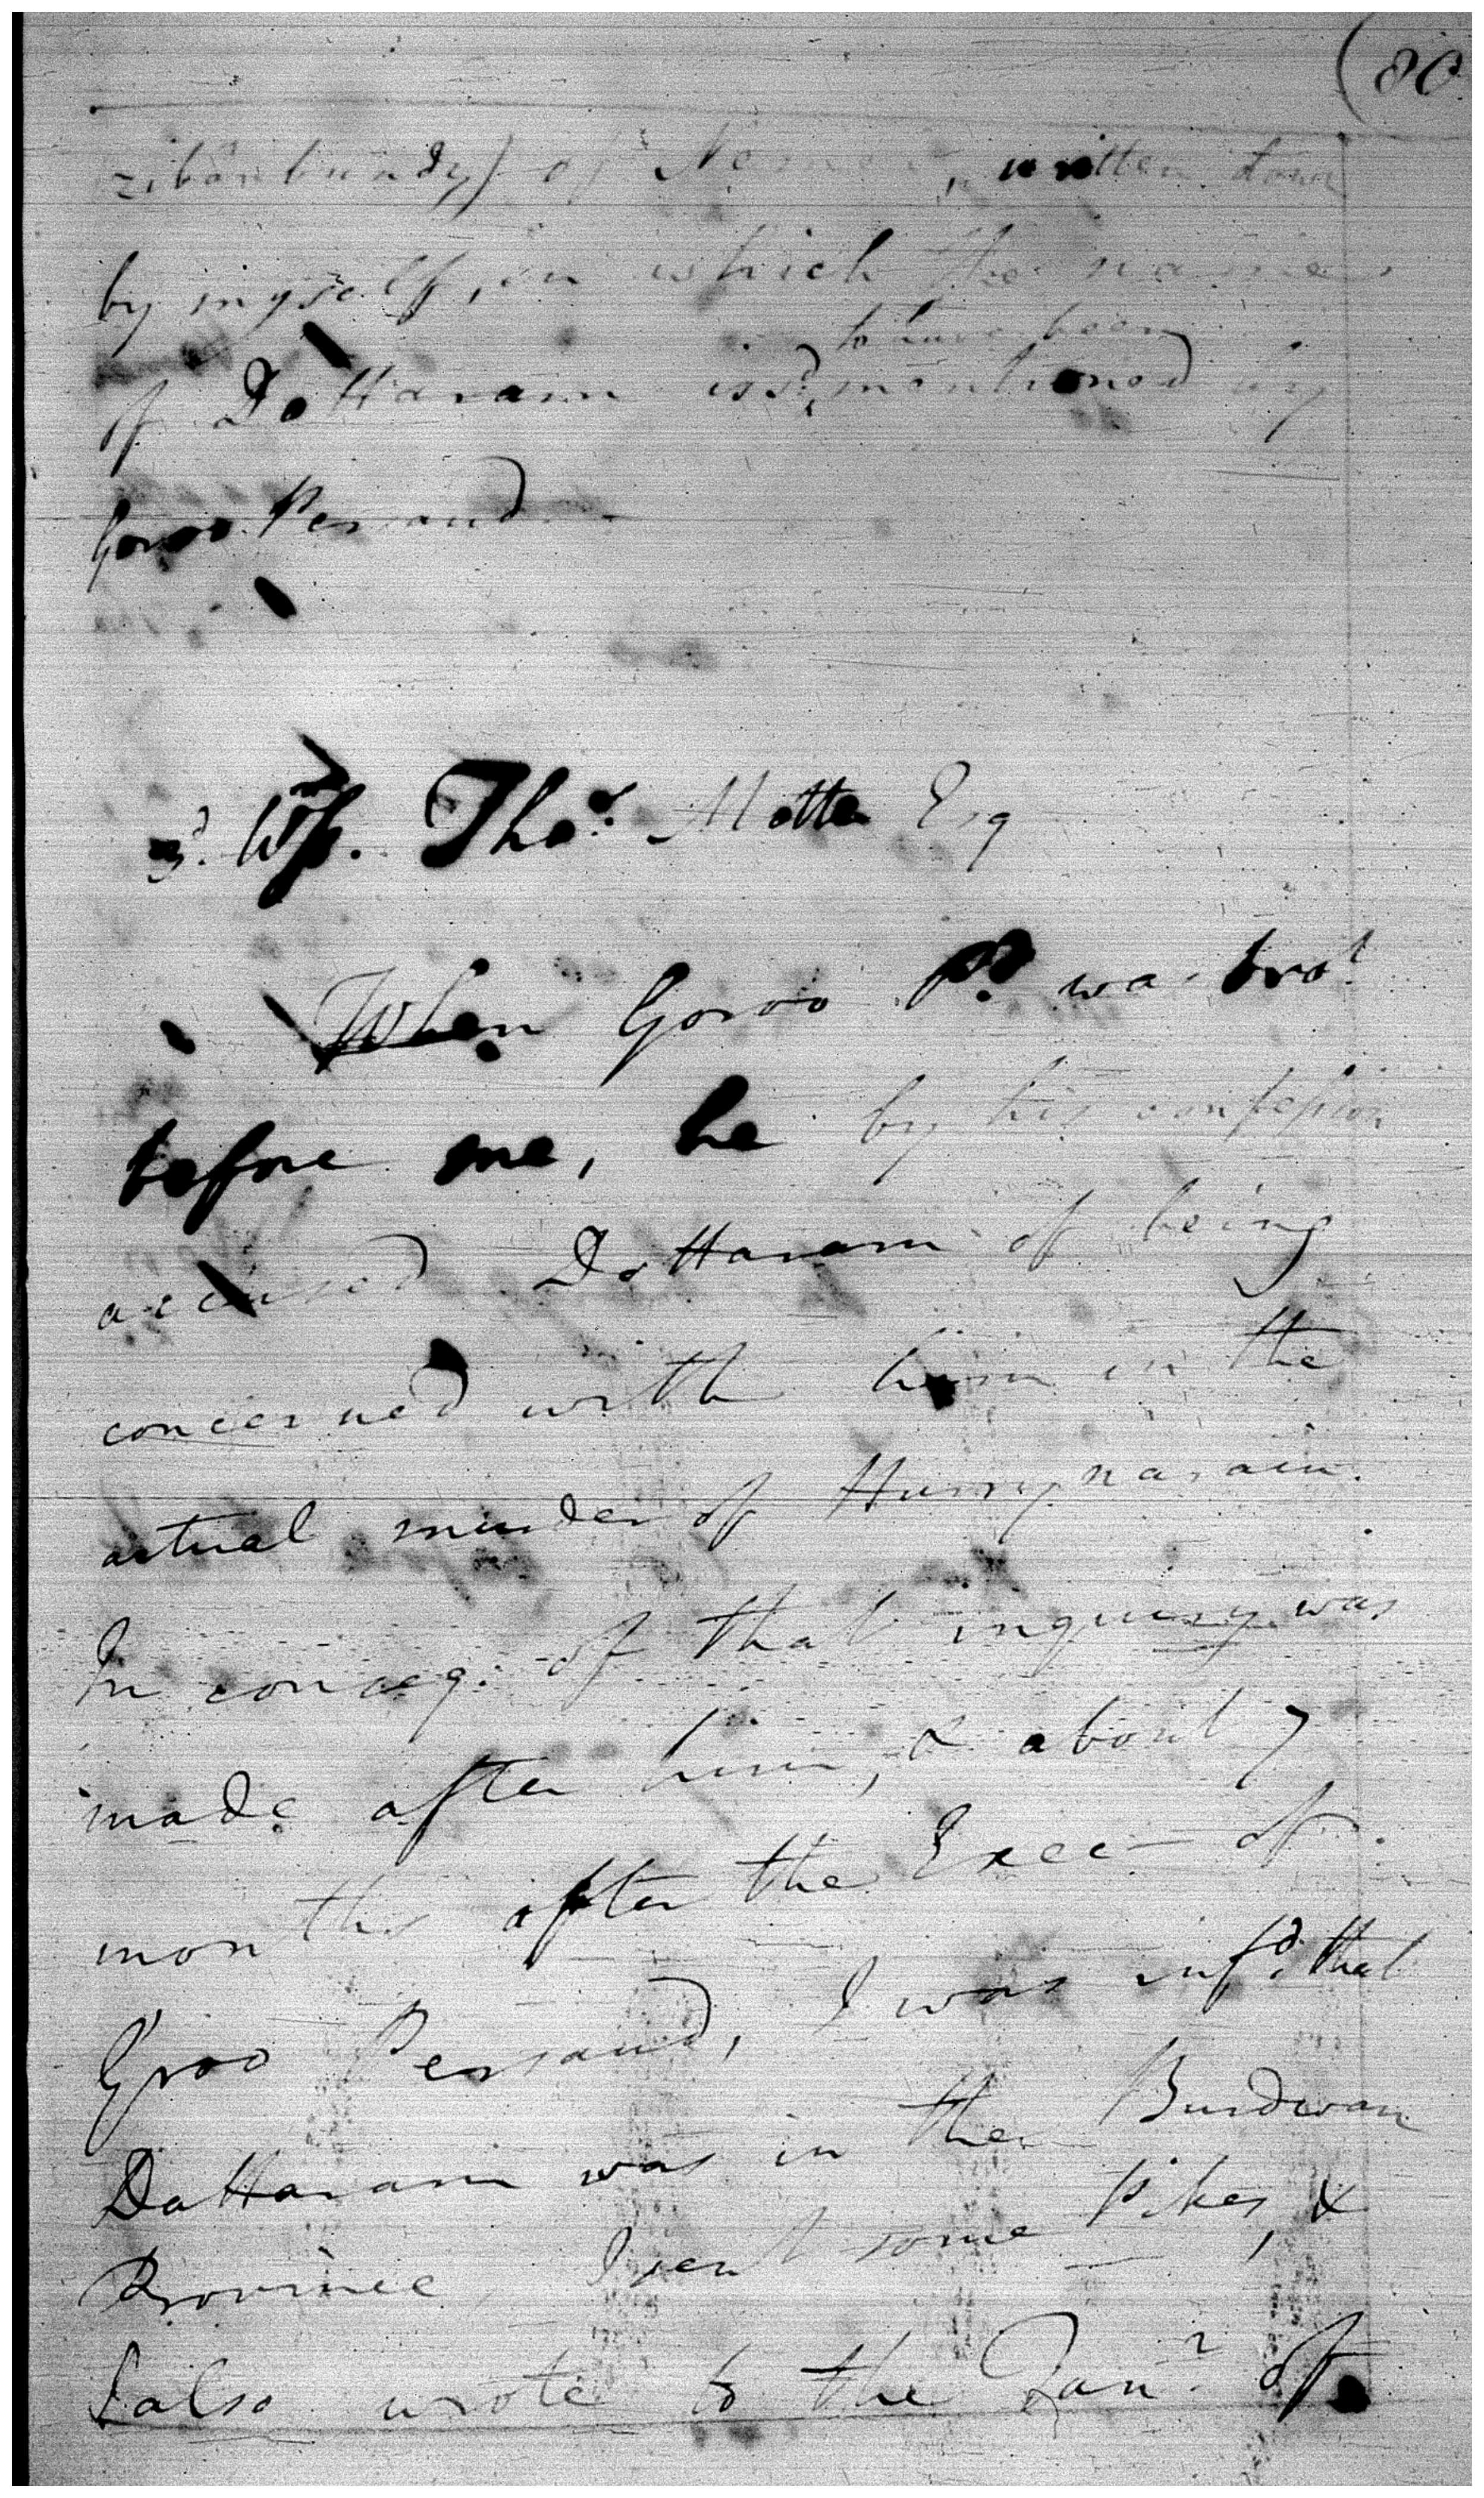 (80
zibanbundy) of Nom, written down
by myself, in which the name
to have been
of Dattaram iss:d mentioned by
Goroo Persaud
3d. Wss. Thos. Motte Esq
When Goroo Pd. was brot
before me, he by his confession
accused Dattaram of being
concerned with him in the
actual murder of Hurrynarain.
In conseq: of that inquiry was
made after him, & about 7
months after the Exec- of
Groo Persaud, I was infd. that
Dattaram was in the Burdwan
Province, I sent some Pikes, &
I also wrote to the Zanr. of